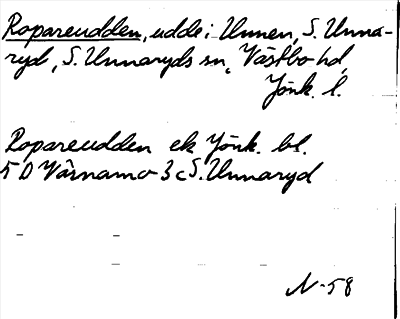 Ropareudden, udde i Unnen, S. Unna-
ryd, S. Unnaryds sn, Västbo hd,
Jönk. l.
Ropareudden ek Jönk. bl.
5 D Värnamo 3 c S. Unnaryd
N-58